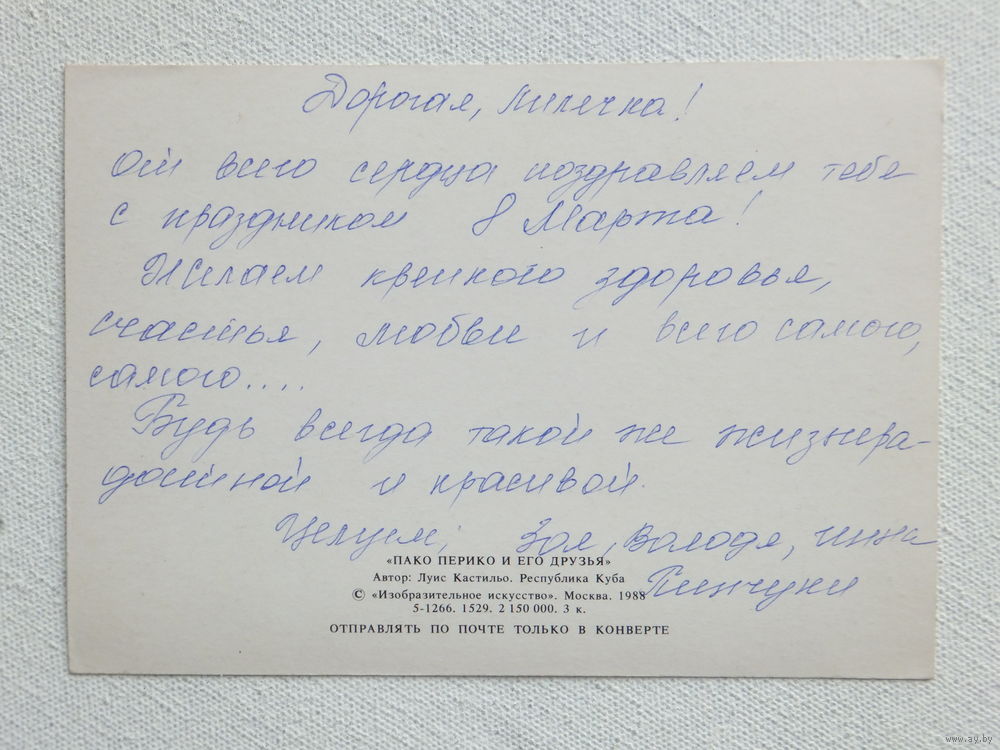 Дорогая, Милечка!
От всего сердца поздравляем тебе
с праздником 8 Марта!
Желаем крепкого здоровья,
счастья, любви и всего самого,
самого....
Будь всегда такой же жизнера-
достной и красивой.
Целуем, Зоя, Володя, Инна
Пинчуки
«ПАКО ПЕРИКО И ЕГО ДРУЗЬЯ»
Автор: Луис Кастильо. Республика Куба
© «Изобразительное искусство». Москва. 1988
5-1266. 1529. 2 150 000. 3 к.
ОТПРАВЛЯТЬ ПО ПОЧТЕ ТОЛЬКО В КОНВЕРТЕ
www.ay.by